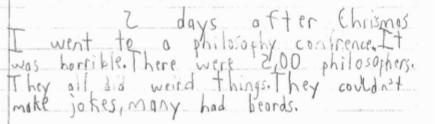 2 days after Chrismas
I went to a philosophy confrence. It
was horrible. There were 2,00 philosophers.
They all did weird things. They couldn't
make jokes, many had beards.